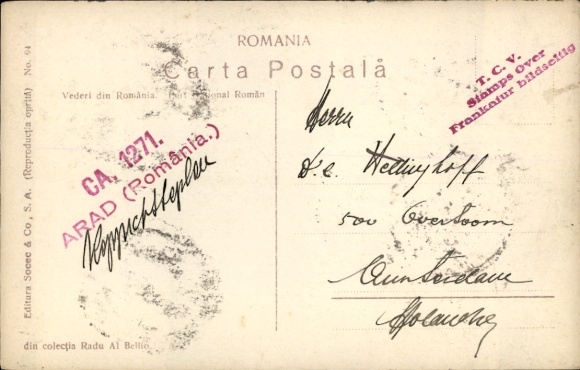 ROMANIA
Carta Postală
Vederi din România. Port Național Român
T. C. V.
Stamps Over
Frankatur bildseitig
CA. 1271.
ARAD (România.)
Herrn
Hellinghoff
500 Overtoom
Amsterdam
Editura Socec & Co., S. A. (Reproducția oprită) No. 64
din colecția Radu Al Beldin